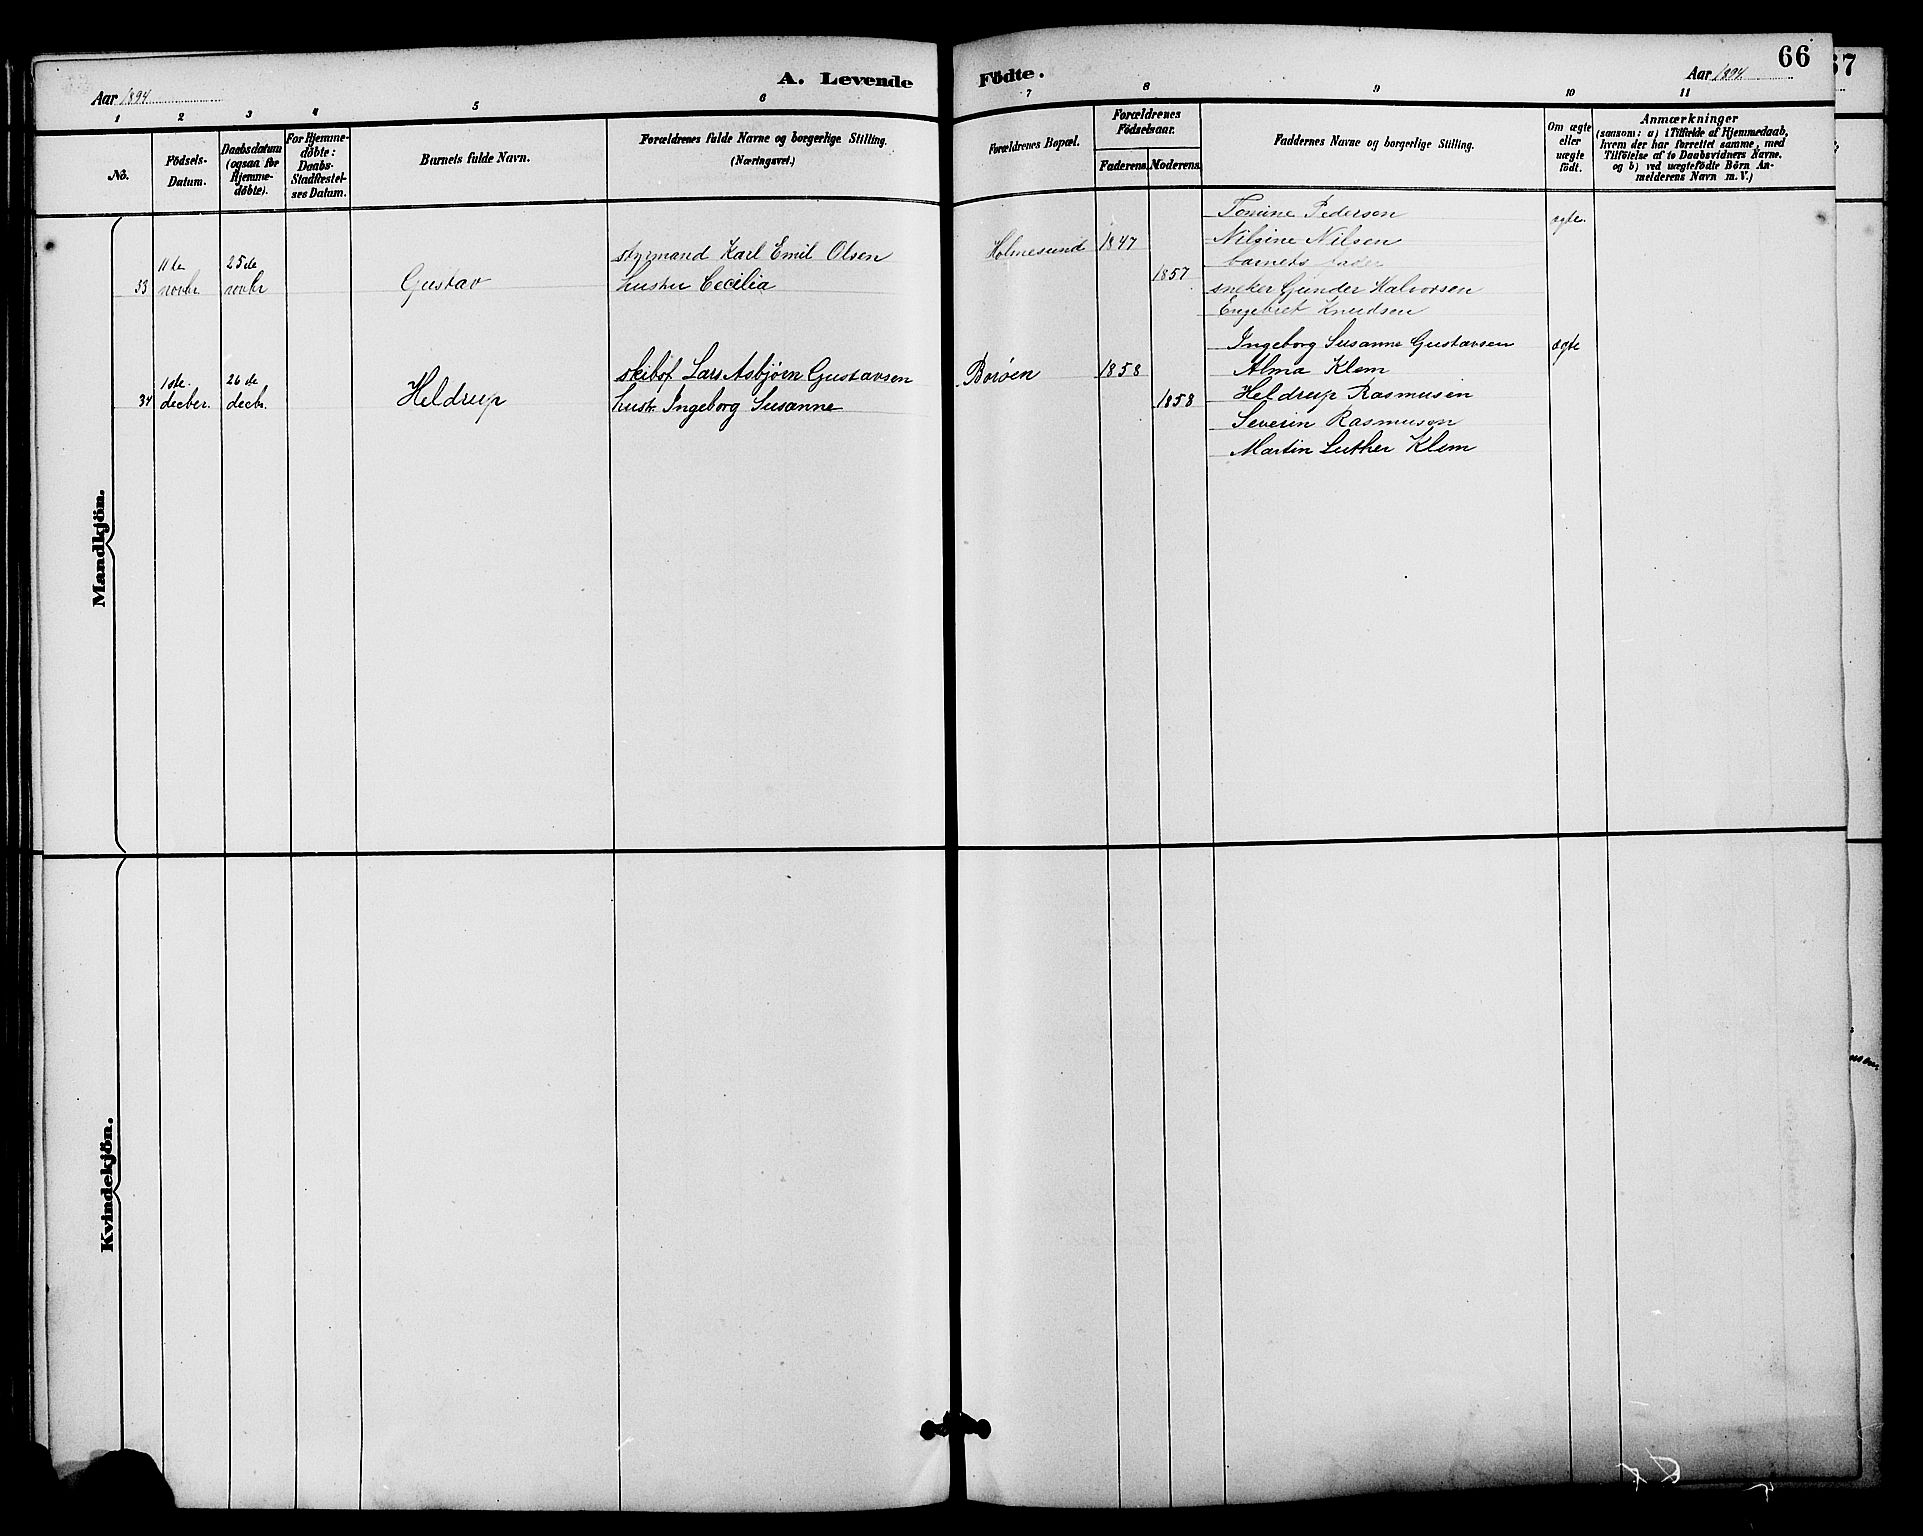 A. Levende Födte.
66
67
Aar 1894
Aar 1894
1 2 3 4 5 6 7 8 9 10 11
No.
Födsels-Datum.
Daabsdatum (ogsaa for Hjemme-döbte).
For Hjemme-döbte: Daabs-Stadfæstel-ses Datum.
Barnets fulde Navn.
Forældrenes fulde Navne og borgerlige Stilling. (Næringsvei.)
Forældrenes Bopæl.
Forældrenes Födselsaar.
Faderens. Moderens.
Faddernes Navne og borgerlige Stilling.
Om ægte eller uægte födt.
Anmærkninger
(saasom: a) i Tilfælde af Hjemmedaab,
hvem der har forrettet samme, med
Tilföielse af to Daabsvidners Navne,
og b) ved uægtefödte Börn An-
melderens Navn m. V.)
Mandkjön.
33
11te novbr
25de novbr
Gustav
styrmand Karl Emil Olsen
hustru Cecilia
Holmesund
1847
1857
Tomine Pedersen
Nilsine Nilsen
barnets fader
sneker Gunder Halvorsen
Engebret Knudsen
ægte.
34
1ste decber.
26de decbr.
Heldrup
skibsf. Lars Asbjørn Gustavsen
hustr. Ingeborg Susanne
Borøen
1858
1858
Ingeborg Susanne Gustavsen
Alma Klem
Heldrup Rasmusen
Severin Rasmusen
Martin Luther Klem
ægte
Kvindekjön.